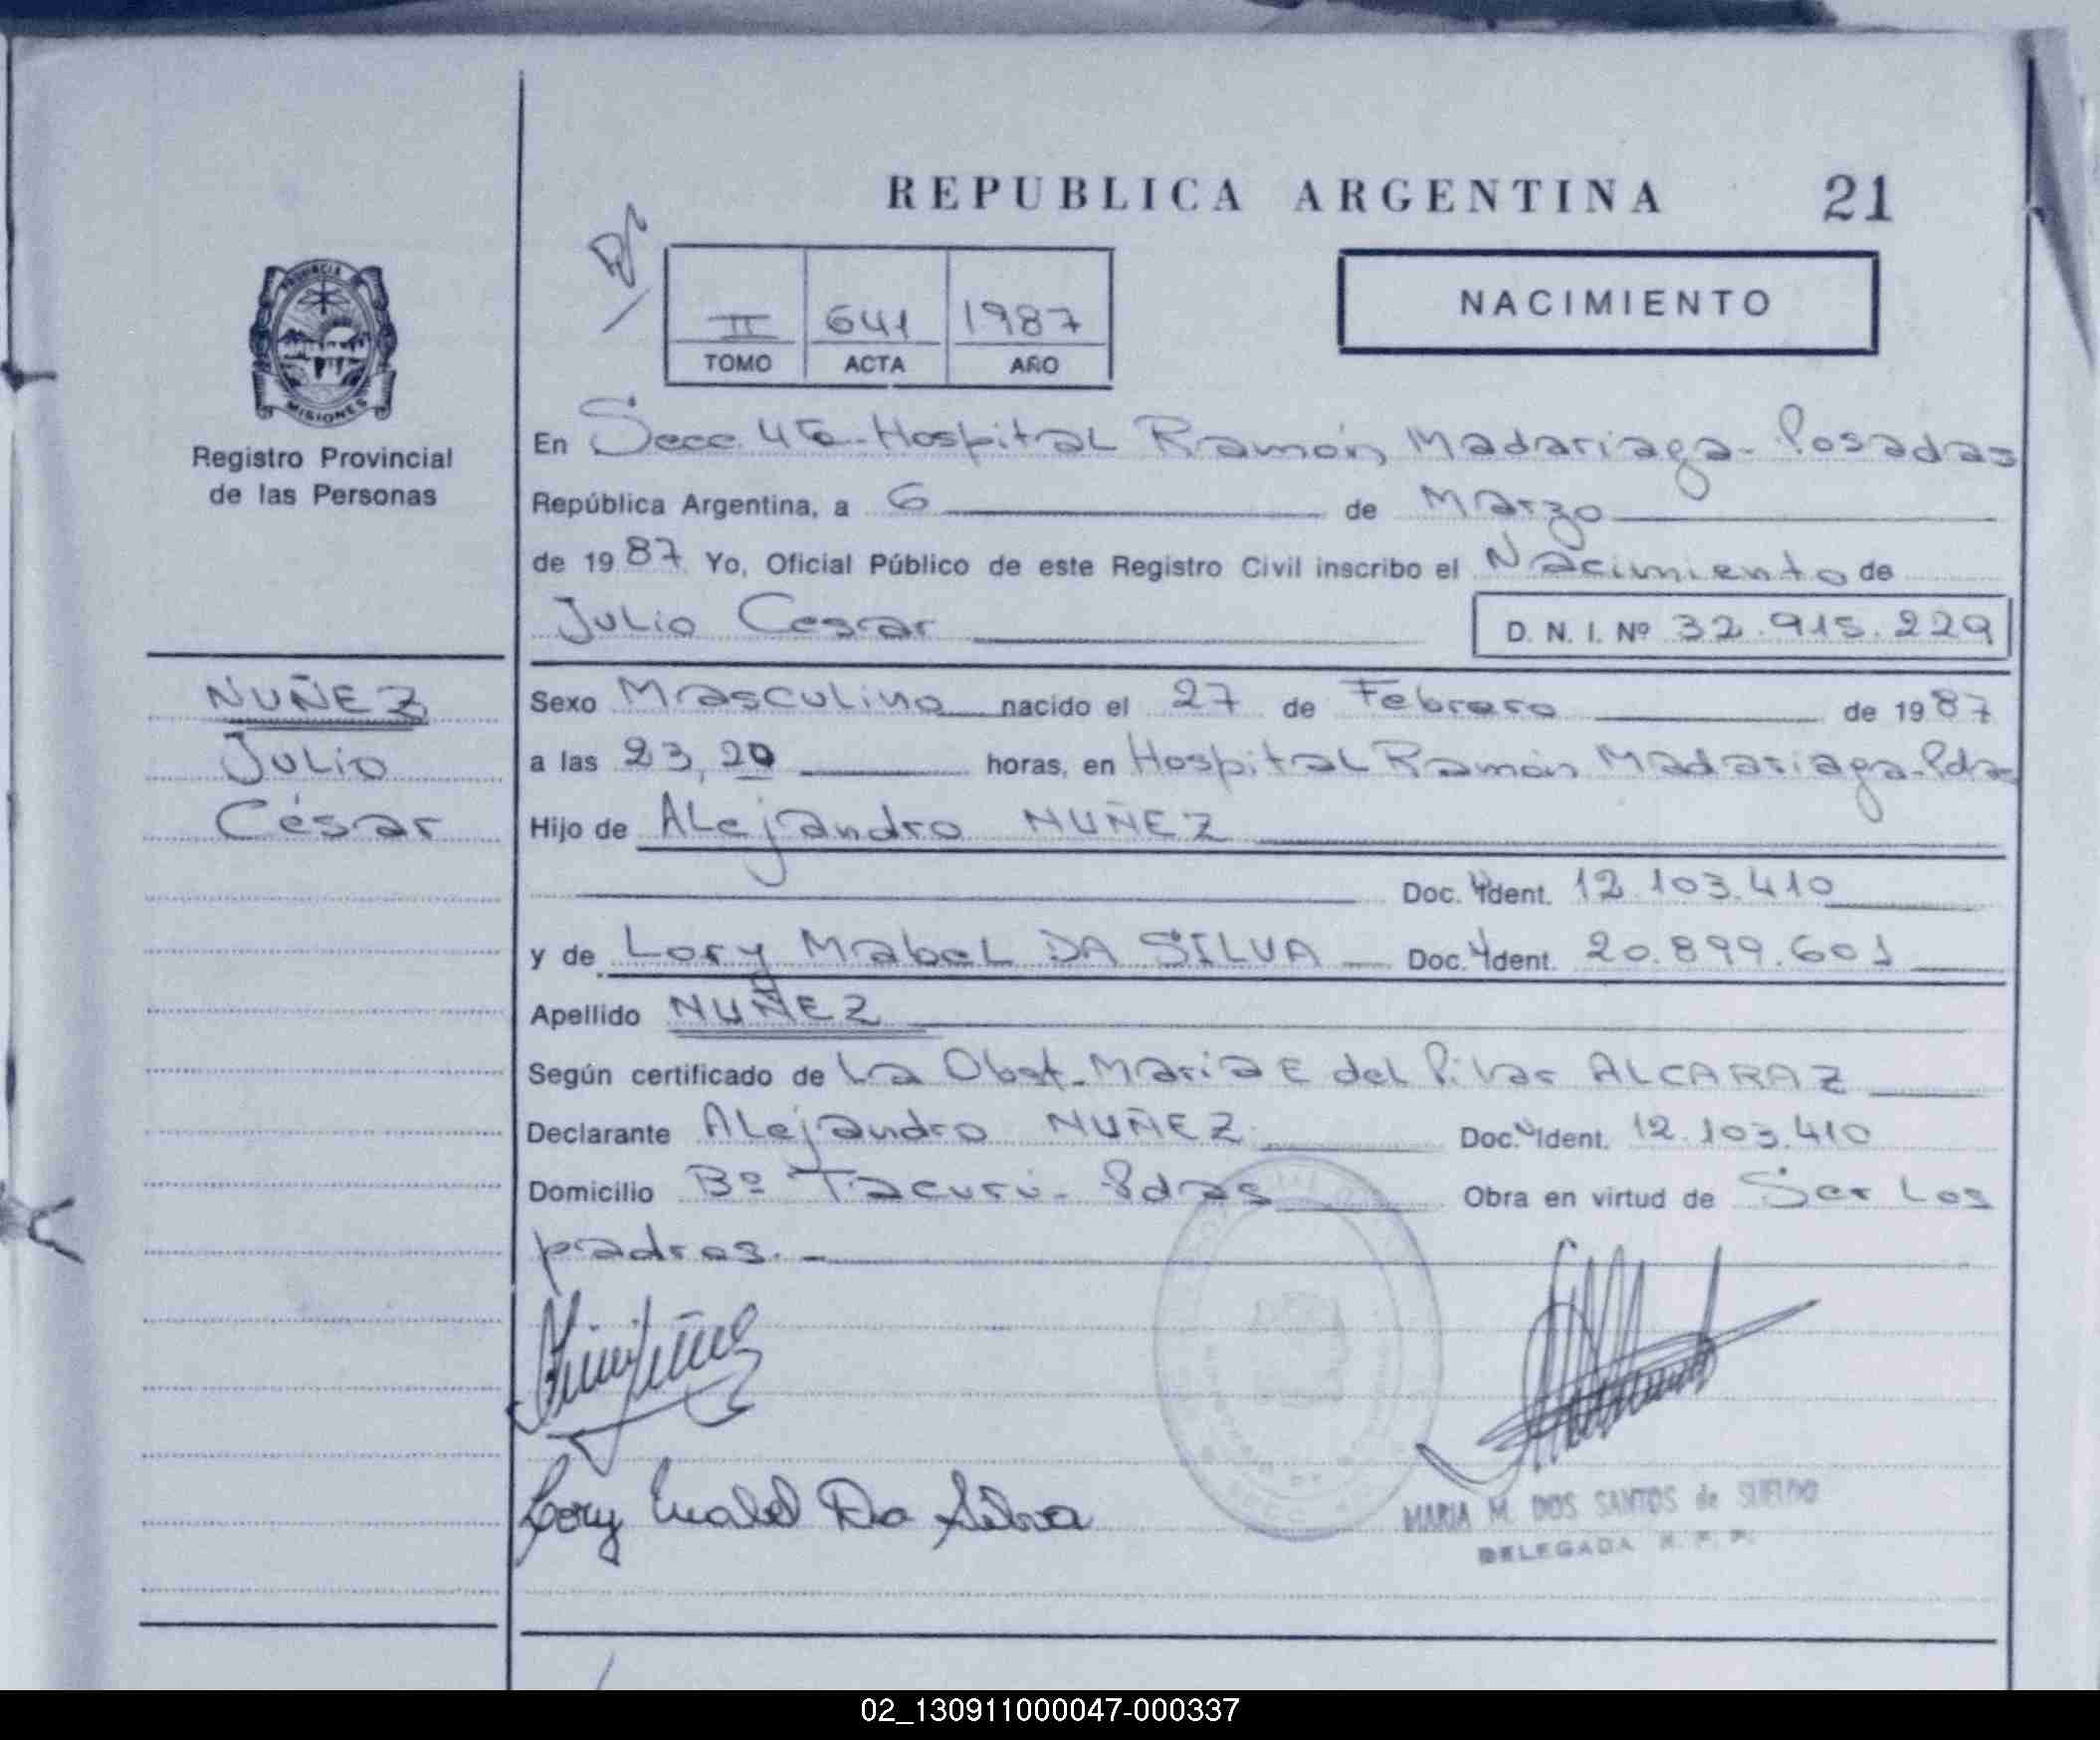 REPUBLICA ARGENTINA 21
NACIMIENTO
II 641 1987
TOMO ACTA AÑO
PROVINCIA
MISIONES
Registro Provincial
de las Personas
NUÑEZ
Julio
César
En Secc. 4ta. Hospital Ramón Madariaga - Posadas
República Argentina, a 6 de Marzo
de 1987 Yo, Oficial Público de este Registro Civil inscribo el Nacimiento de
Julio Cesar D. N. I. Nº 32.915.229
Sexo Masculino nacido el 27 de Febrero de 1987
a las 23,20 horas, en Hospital Ramón Madariaga-Pdas
Hijo de Alejandro NUÑEZ
Doc. Ident. 12.103.410
y de Lory Mabel DA SILVA Doc. Ident. 20.899.601
Apellido NUÑEZ
Según certificado de La Obst. Maria E del Pilar ALCARAZ
Declarante Alejandro NUÑEZ Doc. Ident. 12.103.410
Domicilio Bº Tacurú - Pdas Obra en virtud de Ser Los
padres.
Lory Mabel Da Silva
MARIA M. DOS SANTOS de SUELDO
DELEGADA R. P. P.
02_130911000047-000337